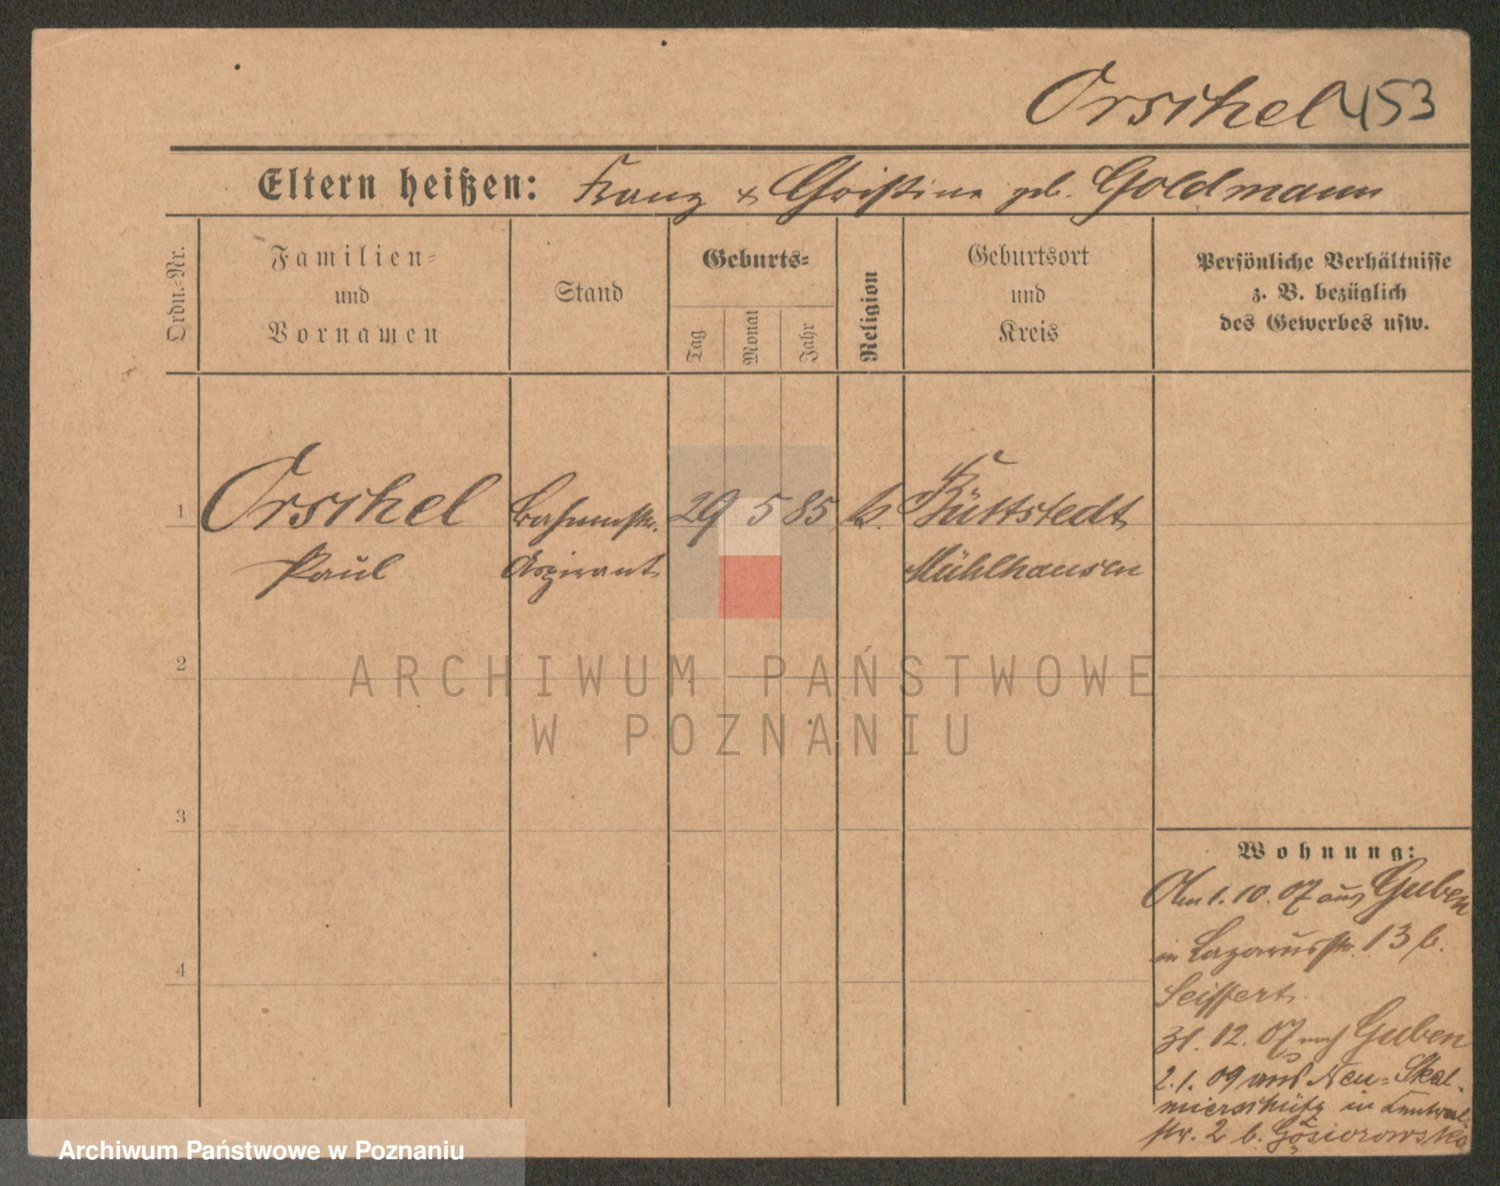 Orschel 453
Eltern heißen: Franz & Christine geb. Goldmann
Ordn.-Nr.
Familien- und Vornamen
Stand
Geburts-
Tag
Monat
Jahr
Religion
Geburtsort und Kreis
Persönliche Verhältnisse z. B. bezüglich des Gewerbes usw.
1 Orschel 29 5 85 k. Küttstedt
Paul Aspirant Mühlhausen
2
3
4
Wohnung:
Am 1. 10. 07 aus Guben
in Lazarusstr. 13 b.
Seiffert
31. 12. 07 nach Guben
2. 1. 09 aus Neu-Skal-
mierschütz in
str. 2 b. Gąsiorowska
ARCHIWUM PAŃSTWOWE
W POZNANIU
Archiwum Państwowe w Poznaniu